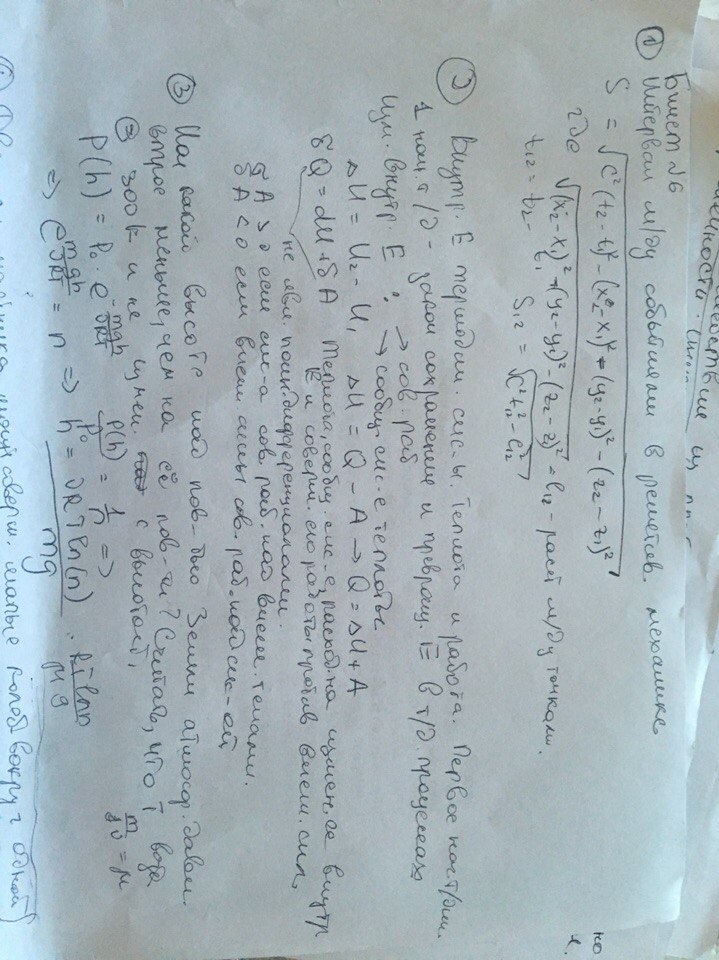 Билет №6
① Интервал м/ду событиями в релятив. механике
S = √c²(t₂-t₁)² - (x₂-x₁)² - (y₂-y₁)² - (z₂-z₁)²
где √(x₂-x₁)² + (y₂-y₁)² - (z₂-z₁)² = l₁₂ - расст м/ду точками.
t₁₂ = t₂ - t₁ S₁₂ = √c²t₁₂² - l₁₂²
② Внутр. E термодин. сис-ы. Теплота и работа. Первое нач. т/дин.
1 нач. т/д - закон сохранения и превращ. E в т/д процессах
Изм. внутр. E: → сов. раб
→ сообщ. сис-е теплоты
ΔU = U₂ - U₁ ΔU = Q - A → Q = ΔU + A
δQ = dU + δA Теплота, сообщ. сис-е, расход. на измен. её внутр
E и соверш. ею работы против внеш. сил,
не явл. полн. дифференциалами.
δA > 0 если сис-а сов. раб. над внеш. телами.
δA < 0 если внеш. силы сов. раб. над сис-ой
③ На какой высоте над пов-тью Земли атмосф. давл.
втрое меньше, чем на её пов-ти? Считать, что T возд
= 300 K и не измен. с высотой.
P(h) = P₀ · e^(-mgh/νRT) P(h)/P₀ = 1/n ⇒ m/ν = μ
⇒ e^(mgh/νRT) = n ⇒ h = νRT ln(n)/mg · RT ln n/μg
малые колеб вокруг одной
но